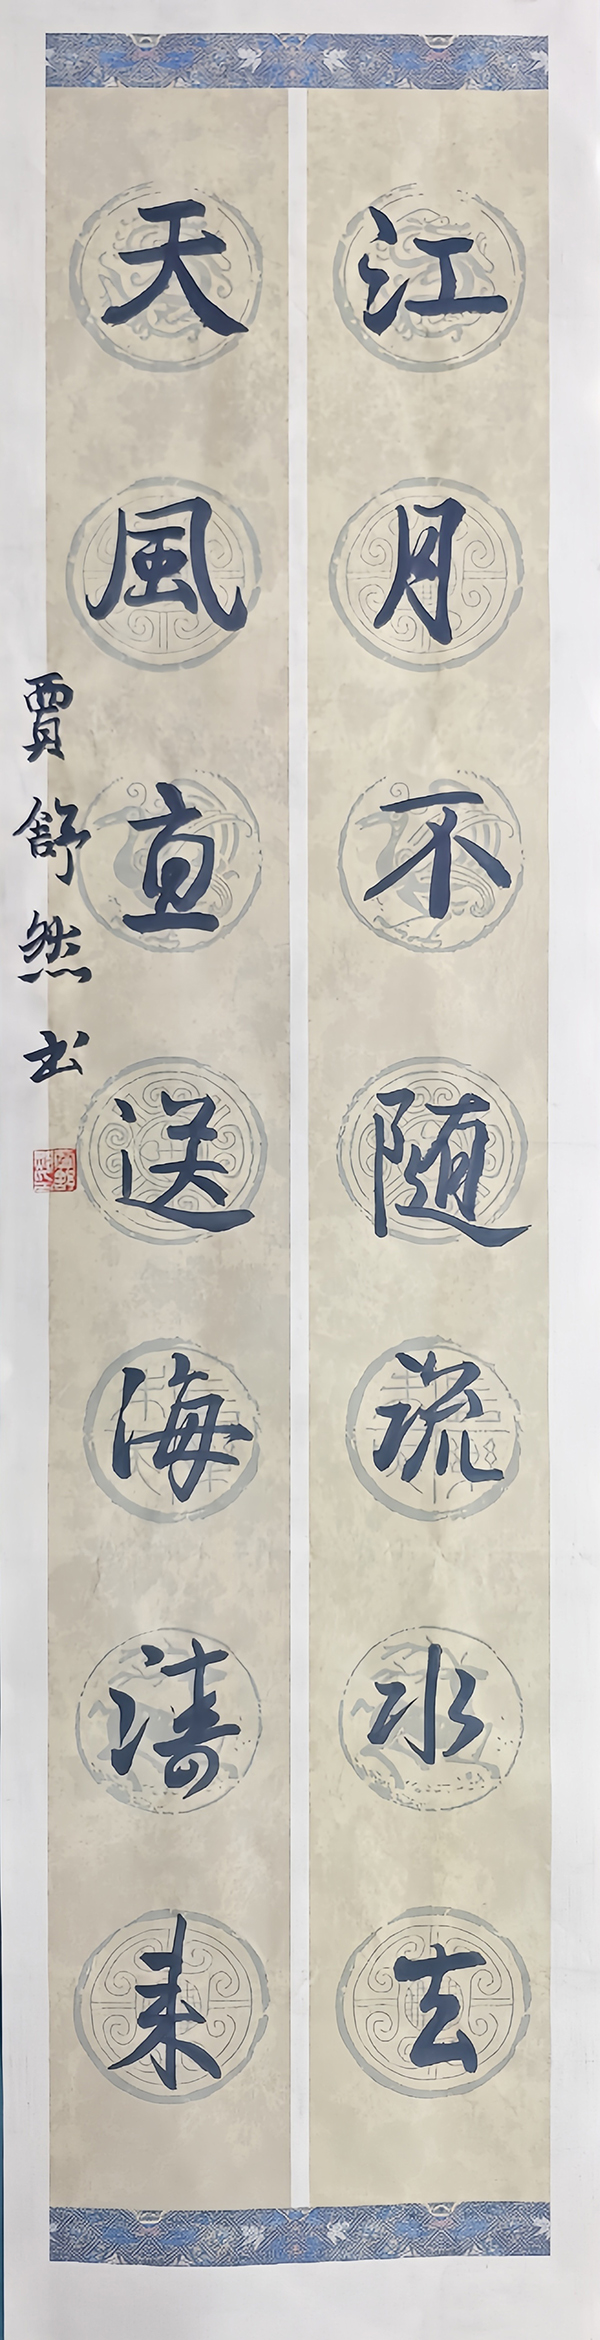 江月不随流水去
天風直送海涛来
賈舒然书